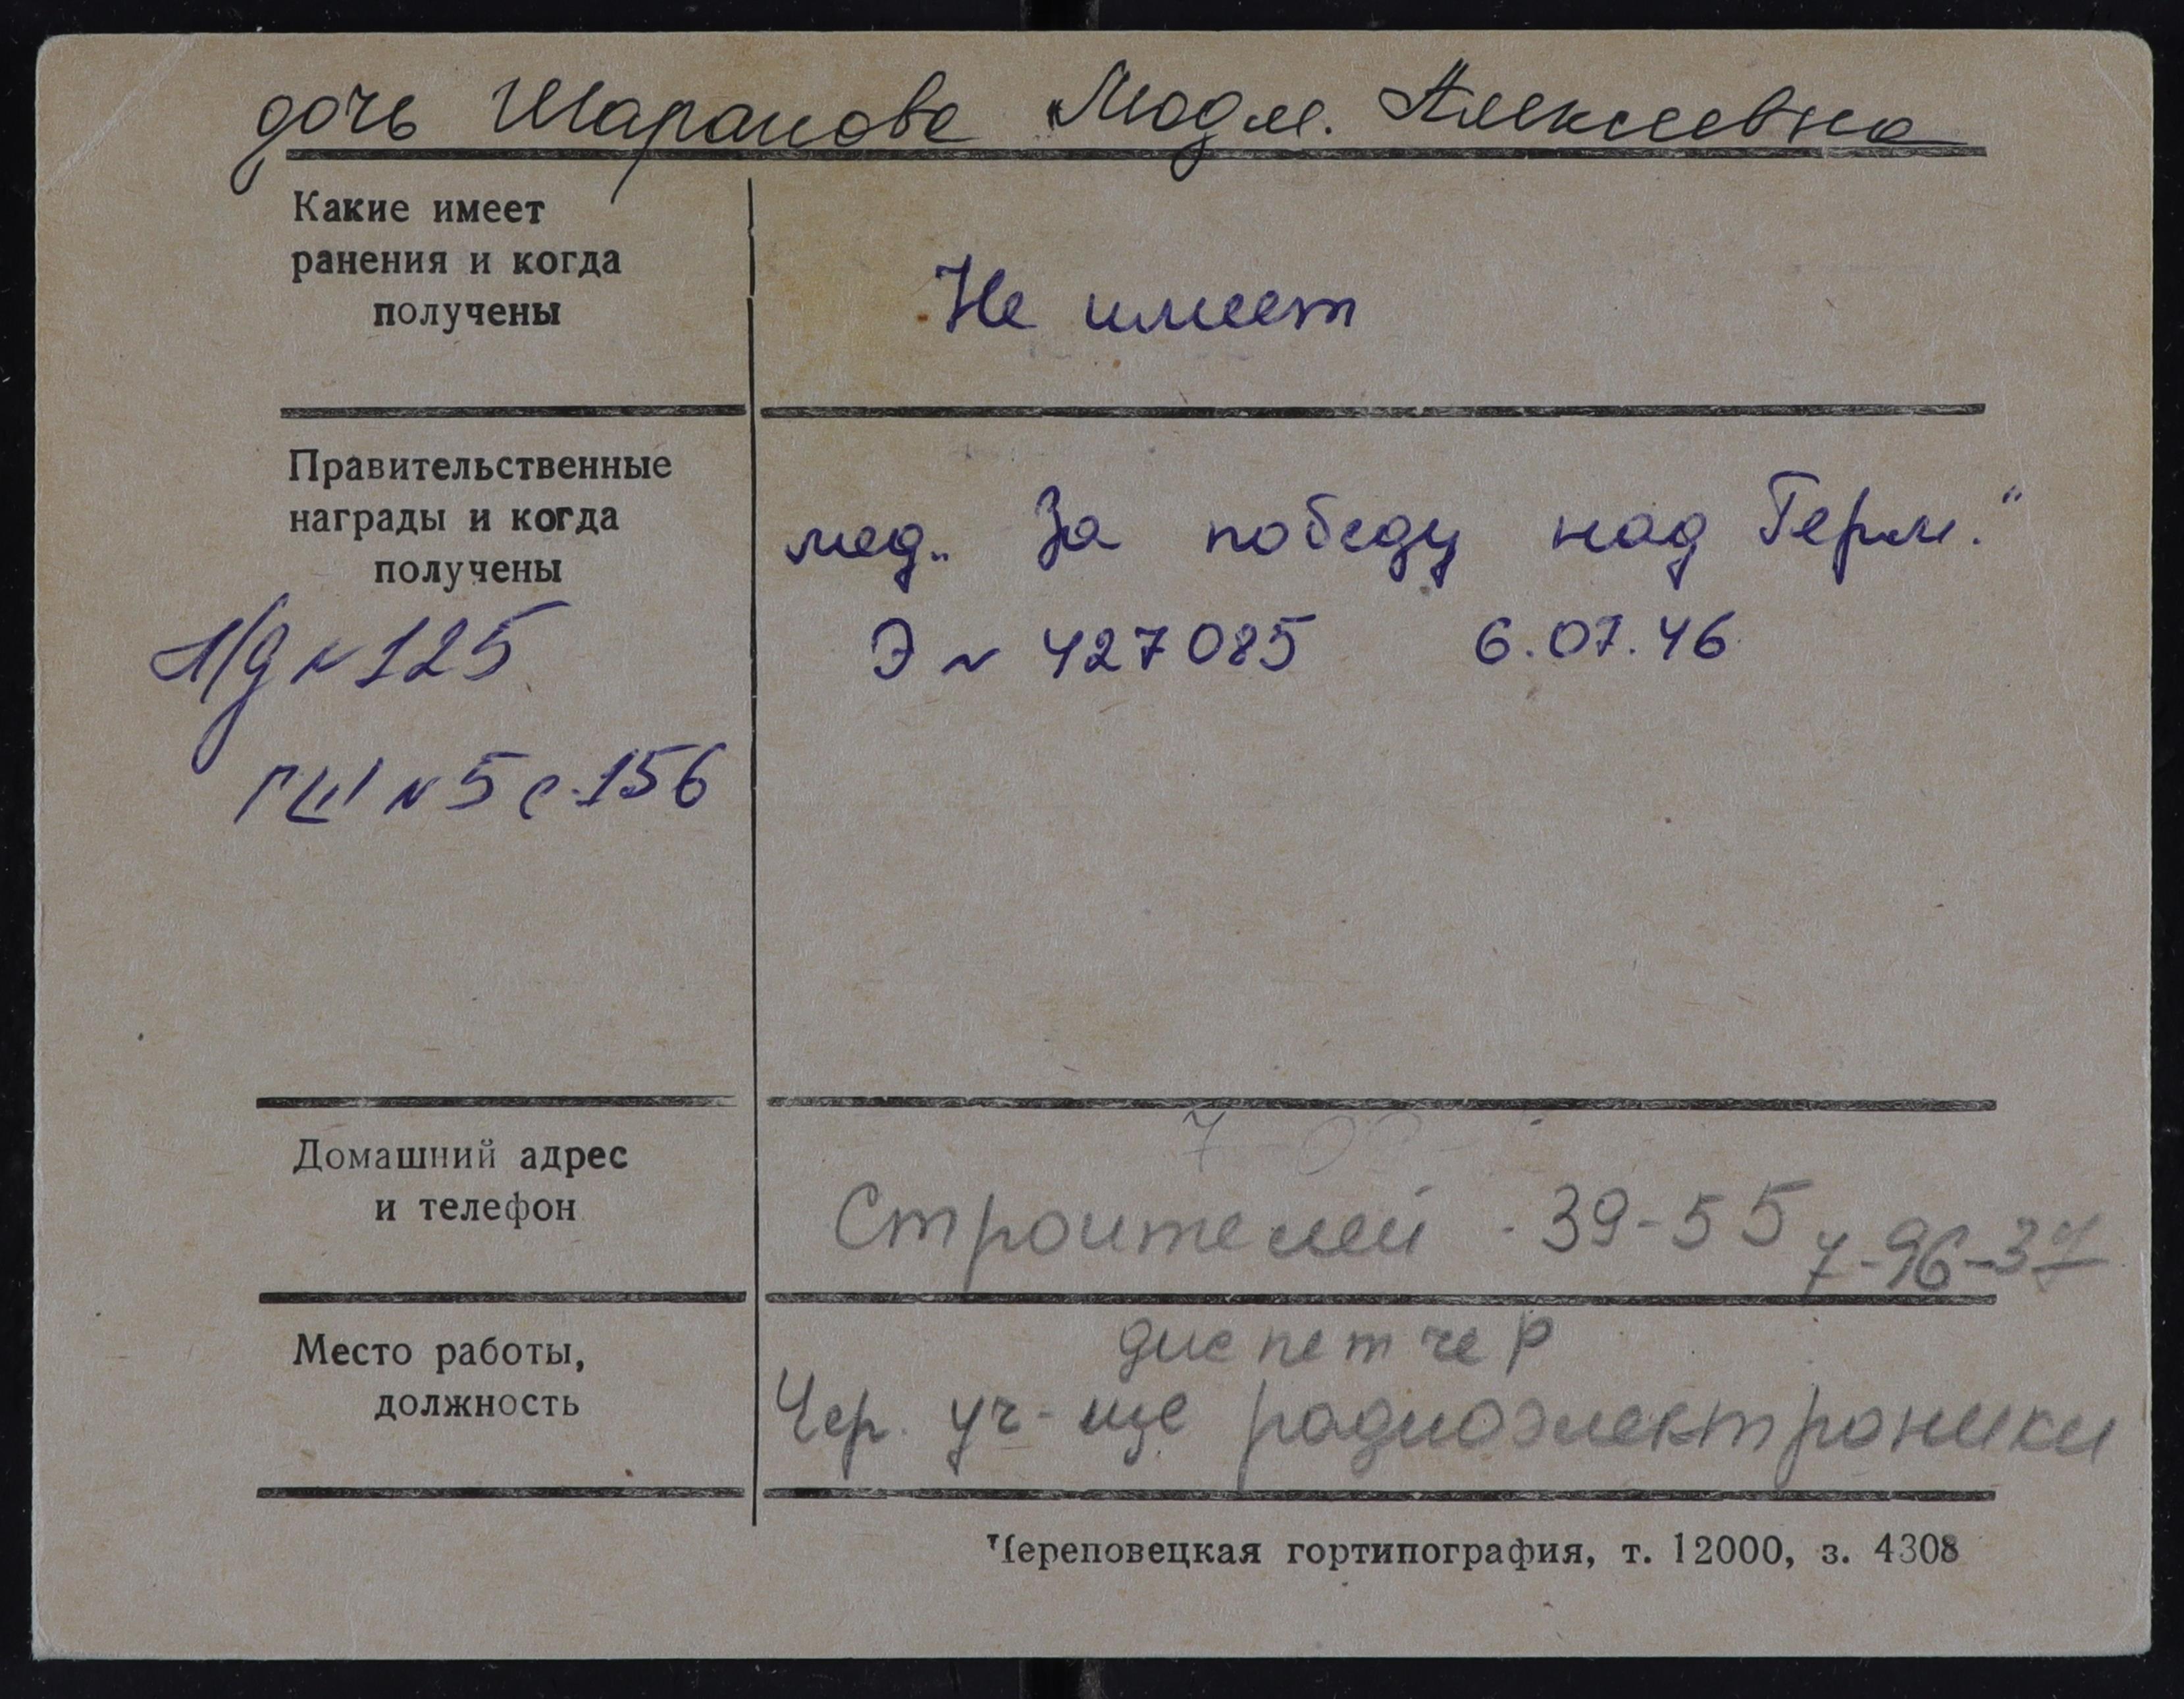 дочь Шарапова Людм. Алексеевна
Какие имеет
ранения и когда
получены
Не имеет
Правительственные
награды и когда
получены
мед. „За победу над Герм.“
Э № 427085 6.07.46
л/д № 125
ГШ № 5 с. 156
Домашний адрес
и телефон
Строителей - 39-55 7-96-37
Место работы,
должность
диспетчер
Чер. уч-ще радиоэлектроники
Череповецкая гортипография, т. 12000, з. 4308